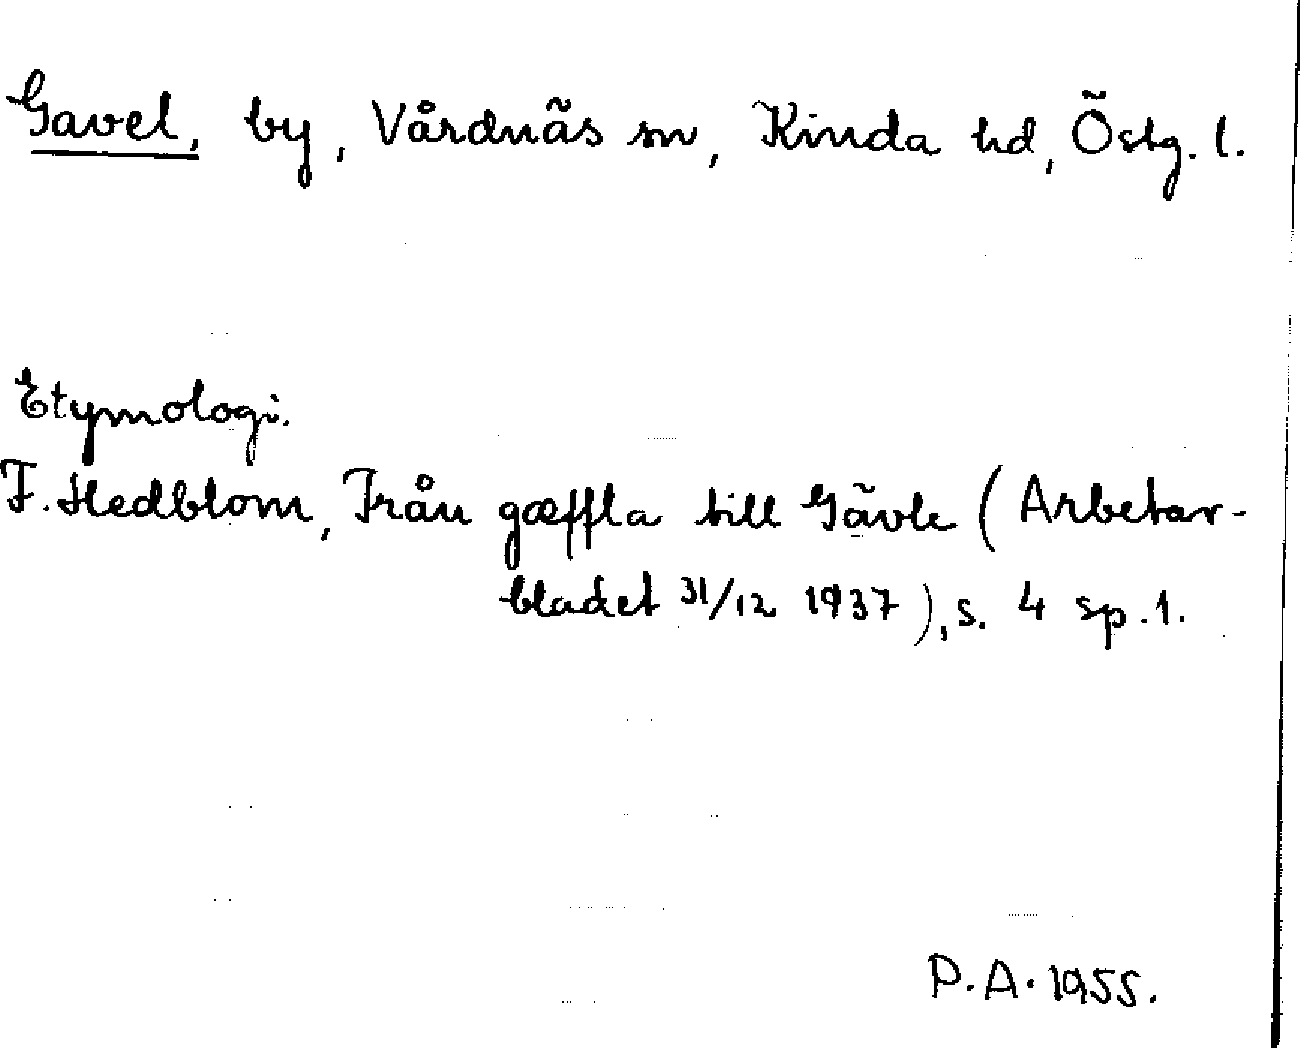 Gavel, by, Vårdnäs sn, Kinda hd, Östg. l.
Etymologi.
F. Hedblom, Från gæffla till Gävle (Arbetar-
bladet 31/12 1937), s. 4 sp. 1.
P.A. 1955.